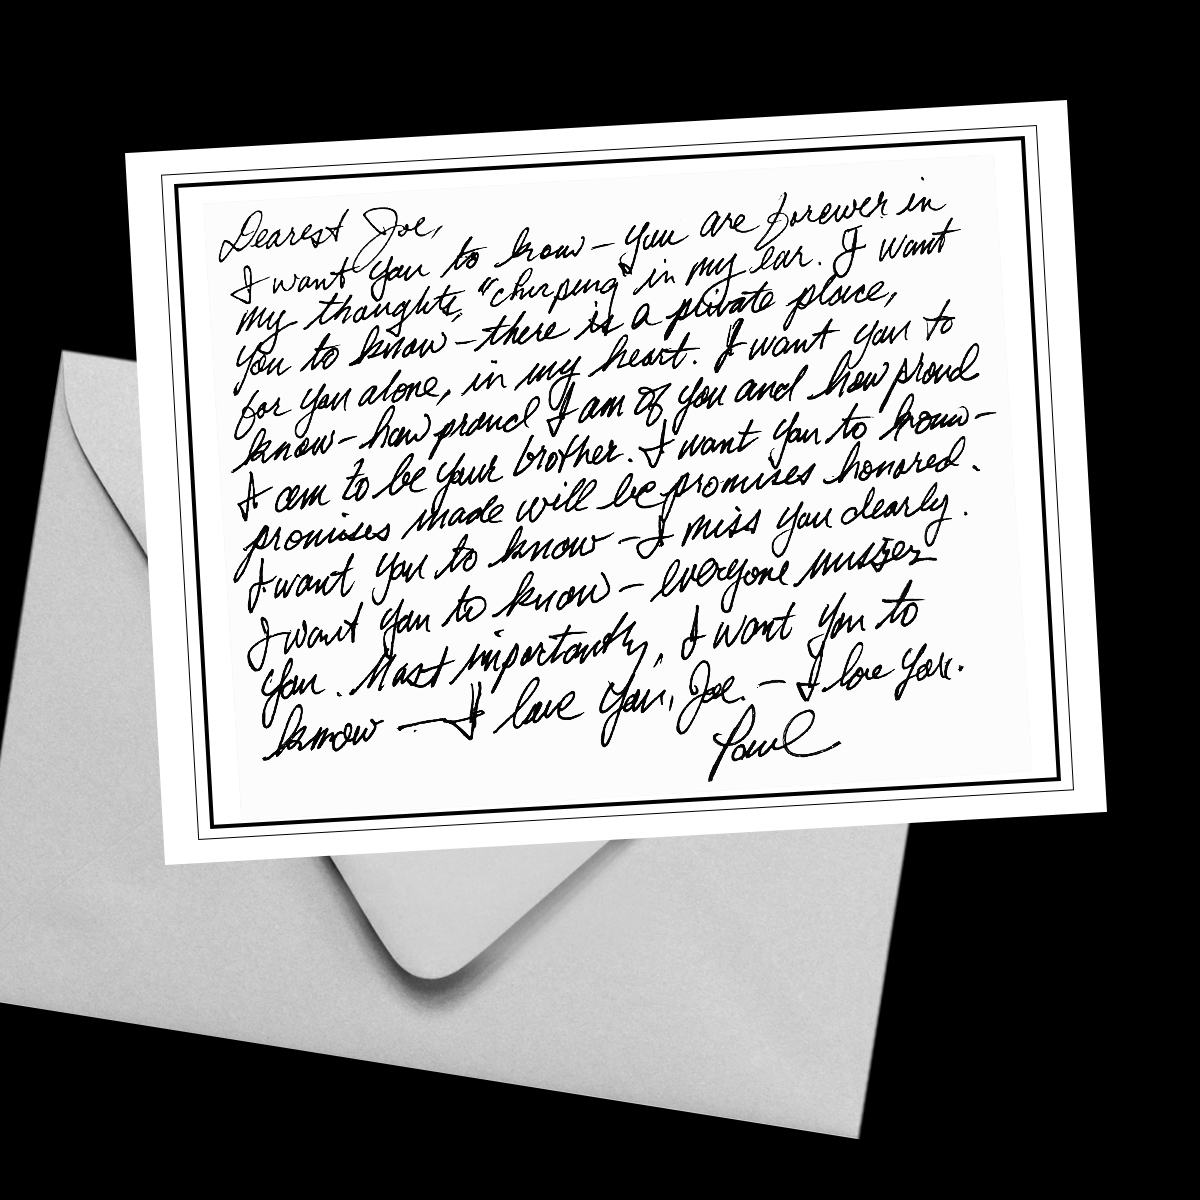 Dearest Joe,
I want you to know – you are forever in
my thoughts, "chirping" in my ear. I want
you to know – there is a private place,
for you alone, in my heart. I want you to
know – how proud I am of you and how proud
I am to be your brother. I want you to know –
promises made will be promises honored.
I want you to know – I miss you dearly.
I want you to know – everyone misses
you. Most importantly, I want you to
know — I love you, Joe. – I love you.
Paul